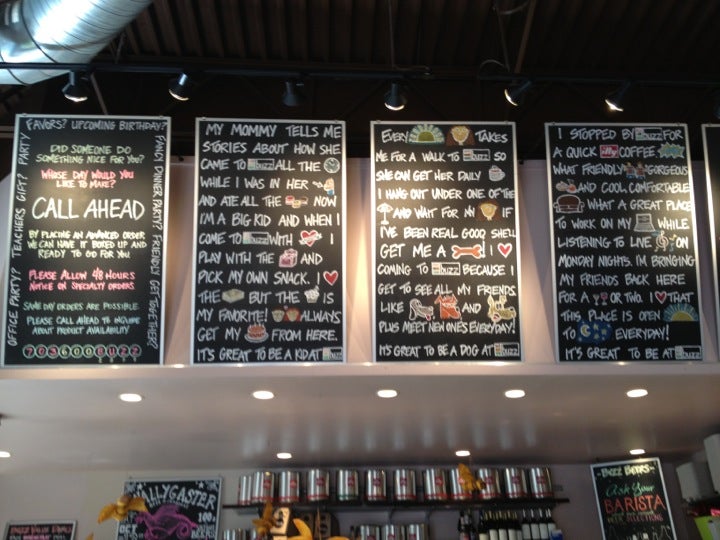 FAVORS? UPCOMING BIRTHDAY?
FANCY DINNER PARTY? FRIENDLY GET TOGETHER?
OFFICE PARTY? TEACHERS GIFT? PARTY
DID SOMEONE DO
SOMETHING NICE FOR YOU?
WHOSE DAY WOULD YOU
LIKE TO MAKE?
CALL AHEAD
BY PLACING AN ADVANCED ORDER
WE CAN HAVE IT BOXED UP AND
READY TO GO FOR YOU.
PLEASE ALLOW 48 HOURS
NOTICE ON SPECIALTY ORDERS.
SAME DAY ORDERS ARE POSSIBLE.
PLEASE CALL AHEAD TO INQUIRE
ABOUT PRODUCT AVAILABILITY
703600BUZZ
MY MOMMY TELLS ME
STORIES ABOUT HOW SHE
CAME TO buzz ALL THE
WHILE I WAS IN HER
AND ATE ALL THE NOW
I'M A BIG KID AND WHEN I
COME TO buzz WITH I
PLAY WITH THE AND
PICK MY OWN SNACK. I
THE BUT THE IS
MY FAVORITE! ALWAYS
GET MY FROM HERE.
IT'S GREAT TO BE A KID AT buzz
EVERY TAKES
ME FOR A WALK TO buzz SO
SHE CAN GET HER DAILY
I HANG OUT UNDER ONE OF THE
AND WAIT FOR IF
I'VE BEEN REAL GOOD SHE'LL
GET ME A I
COMING TO buzz BECAUSE I
GET TO SEE ALL MY FRIENDS
LIKE AND
PLUS MEET NEW ONES EVERYDAY!
IT'S GREAT TO BE A DOG AT buzz
I STOPPED BY buzz FOR
A QUICK illy COFFEE.
WHAT FRIENDLY GORGEOUS
AND COOL, COMFORTABLE
WHAT A GREAT PLACE
TO WORK ON MY WHILE
LISTENING TO LIVE ON
MONDAY NIGHTS. I'M BRINGING
MY FRIENDS BACK HERE
FOR A OR TWO. I THAT
THIS PLACE IS OPEN
TO EVERYDAY!
IT'S GREAT TO BE AT buzz
BUZZ BEERS
Ask Your
BARISTA